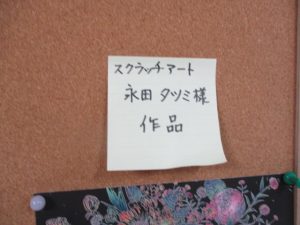 スクラッチアート
永田 タツミ様
作品